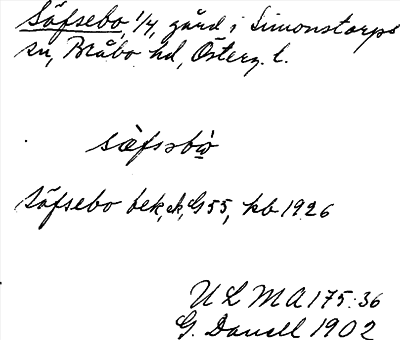 Säfsebo, 1/4, gård i Simonstorps
sn, Bråbo hd, Österg. l.
sæ̀fsəbὼ
Säfsebo bek, ek, G55, kb 1926
ULMA 175:36
G. Danell 1902